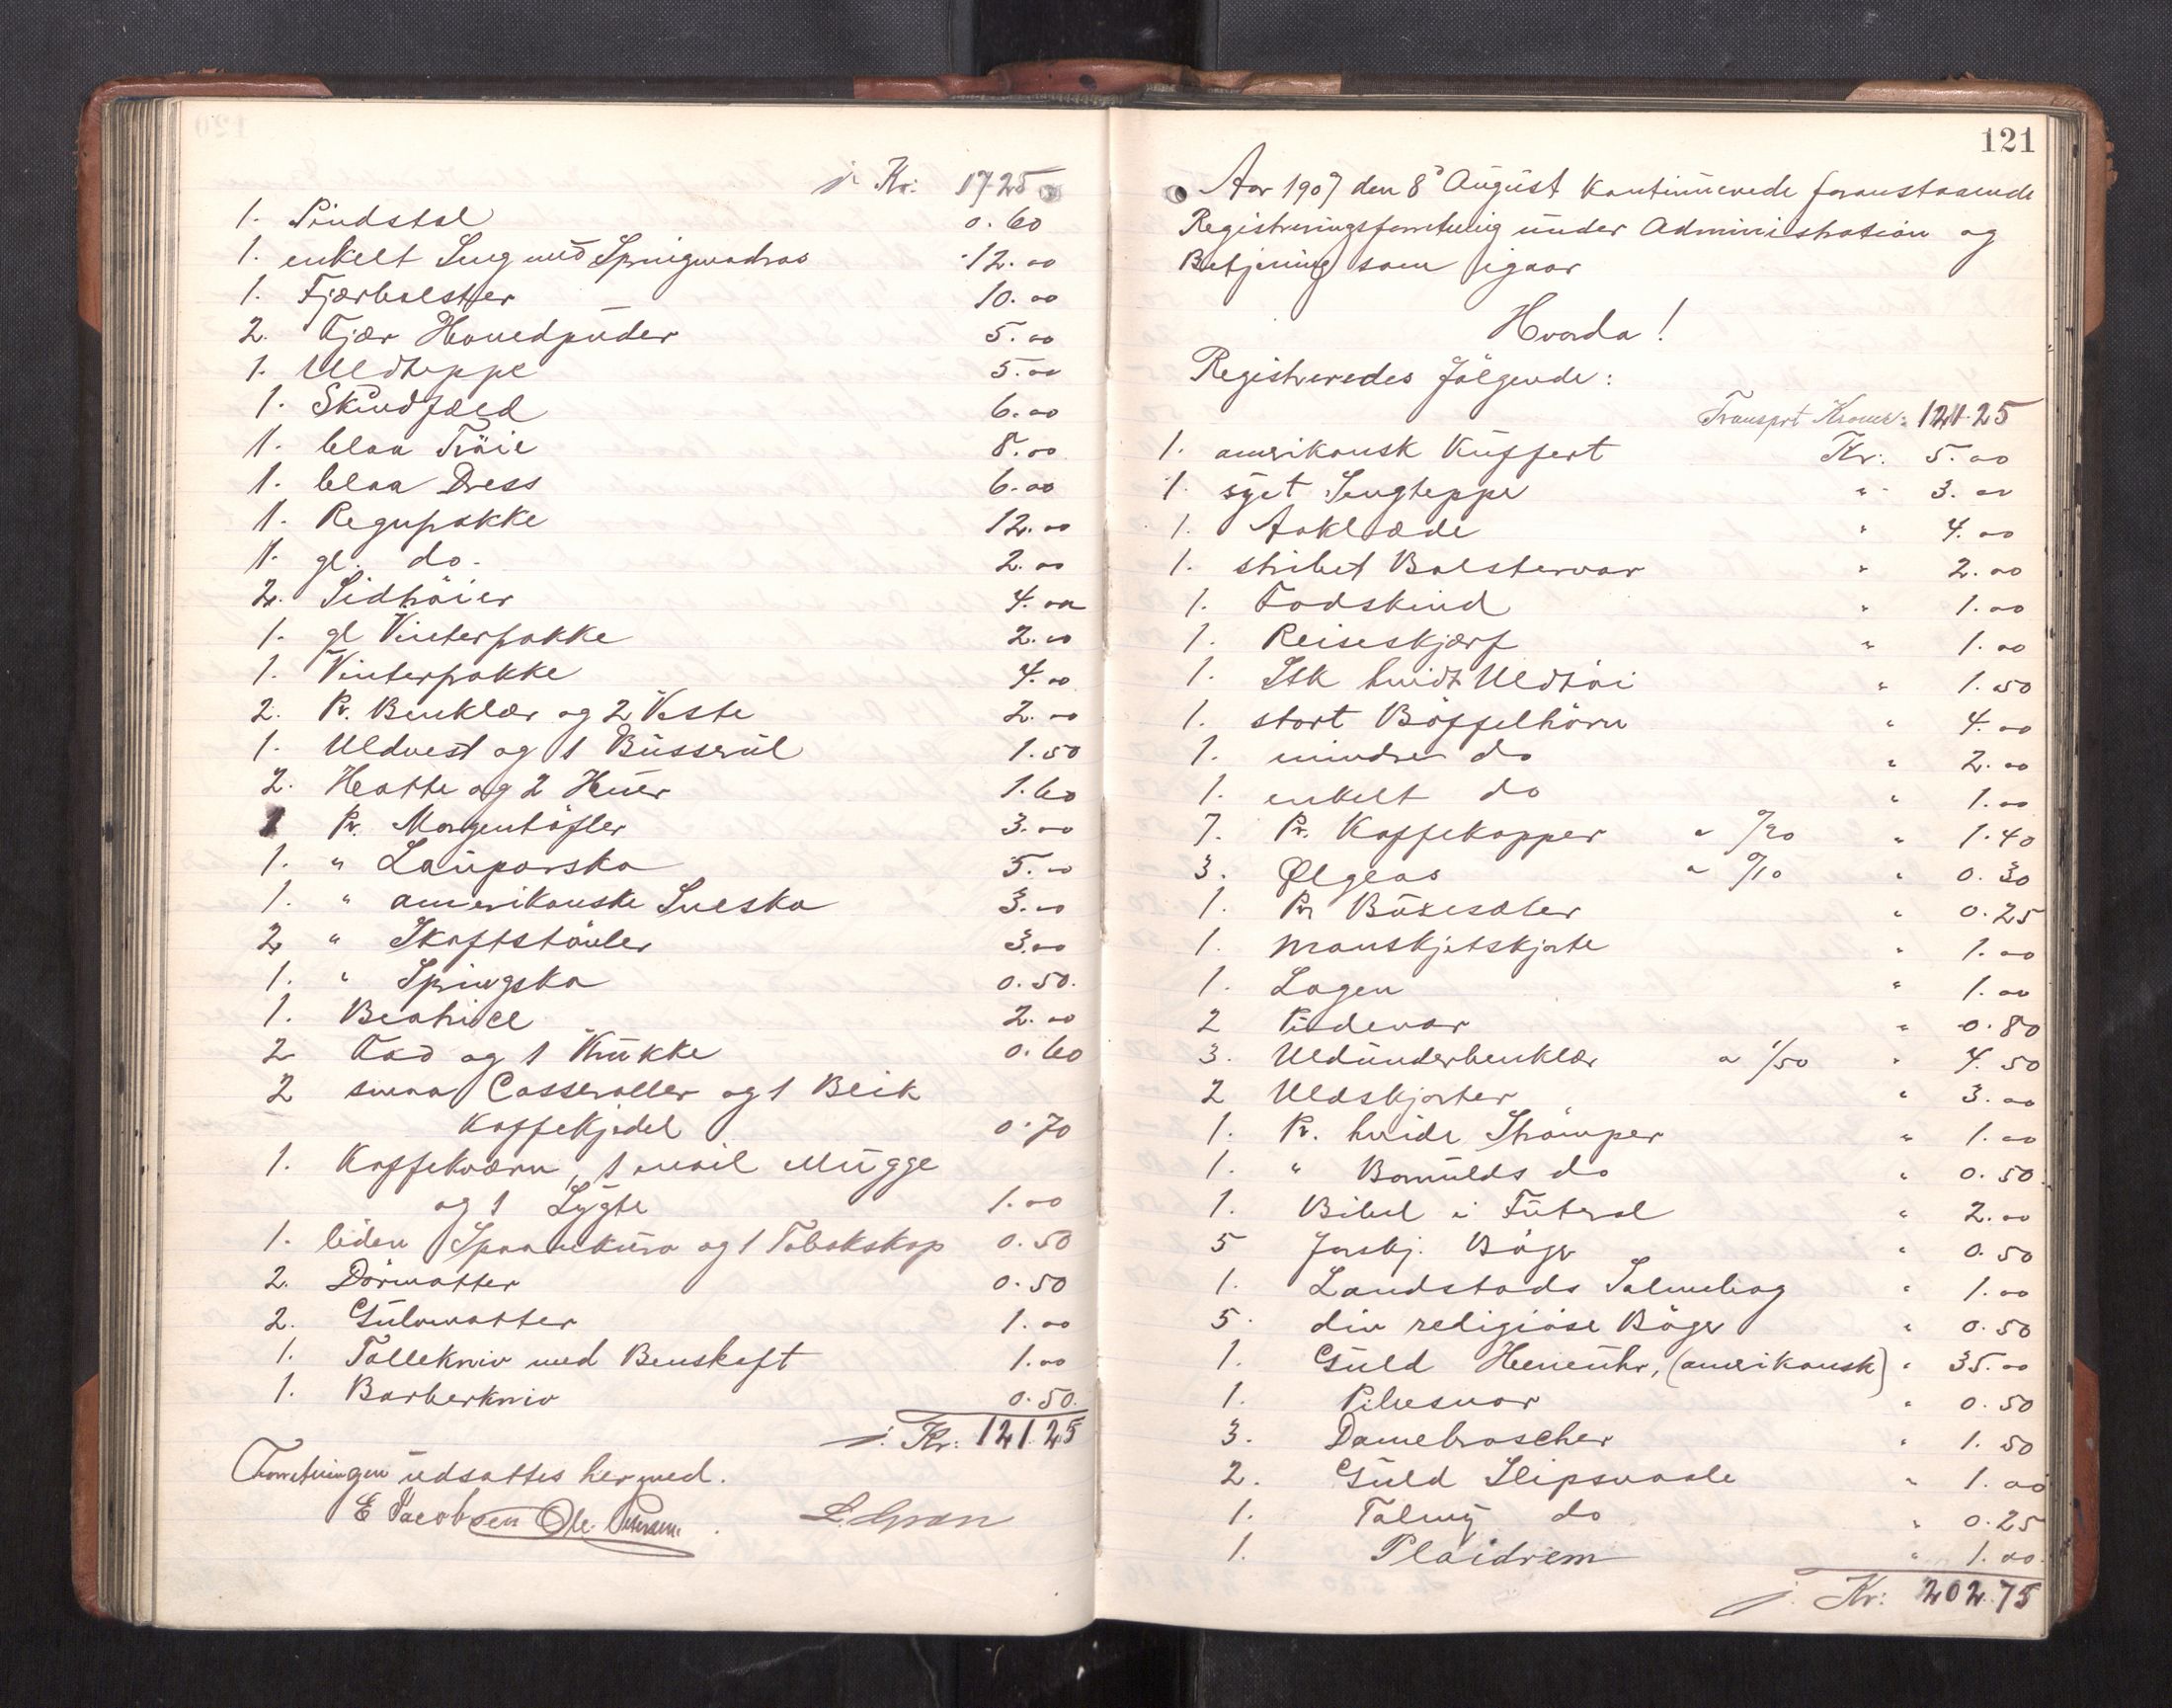 120
j. Kr: 17.25
1. Pindstol 0.60
1. enkelt Seng med Springmadras 12.00
1. Fjærbolster 10.00
2. Fjær Hovedpuder 5.00
1. Uldteppe 5.00
1. Skindfæld 6.00
1. blaa Trøie 8.00
1. blaa Dress 6.00
1. Regnfrakke 12.00
1. gl. do. 2.00
2. Sidtrøier 4.00
1. gl Vinterfrakke 2.00
1. Vinterfrakke 4.00
2. Pr. Benklær og 2 Veste 2.00
1. Uldvest og 1 Busserul 1.50
2. Hatte og 2 Huer 1.60
1 Pr. Morgentøfler 3.00
1. " Lauparsko 5.00
1. " amerikanske Snesko 3.00
2 " Skaftstøvler 3.00
1. " Springsko 0.50.
1. Beatrice 2.00
2 Fad og 1 Krukke 0.60
2 smaa Casseroller og 1 Blik
Kaffekjedel 0.70
1. Kaffekværn, 1 mail Mugge
og 1 Lygte 1.00
1. liden Spaankurv og 1 Tobakskop 0.50
2. Dørmatter 0.50
2. Gulvmatter 1.00
1. Tollekniv med Benskaft 1.00
1. Barberkniv 0.50.
j. Kr: 121.25
Forretningen udsattes hermed.
E Jacobsen Ole Petersen. L. Gran
121
Aar 1907 den 8' August kontinuerede foranstaaende
Registreringsforretning under Administration og
Betjening som igaar
Hvorda!
Registreredes følgende:
Transport Kroner: 121.25
1. amerikansk Kuffert Kr: 5.00
1. syet Sengteppe " 3.00
1. Aaklæde " 4.00
1. stribet Bolstervar " 2.00
1. Fodskind " 1.00
1. Reiseskjærf " 1.00
1. Stk hvidt Uldtøi " 1.50
1. stort Bøffelhorn " 4.00
1. mindre do " 2.00
1. enkelt do " 1.00
7. Pr. Kaffekopper a 0/20 " 1.40
3. Ølglas a 0/10 " 0.30
1. Pr Buxeseler " 0.25
1. Manskjetskjorte " 1.00
1. Lagen " 1.00
2 Pudevar " 0.80
3. Uldunderbenklær a 1/50 " 4.50
2 Uldskjorter " 3.00
1. Pr. hvide Strømper " 1.00
1. " Bomulds do " 0.50
1. Bibel i Futeral " 2.00
5 forskj. Bøger " 0.50
1. Landstads Salmebog " 1.00
5. div religiøse Bøger " 0.50
1. Guld Herreuhr, (amerikansk) " 35.00
1. Pibesnor " 0.50
3. Damebroscher " 1.50
2. Guld Slipsnaale " 1.00
1. Talmy do " 0.25
1. Plaidrem " 1.00.
j. Kr: 202.75